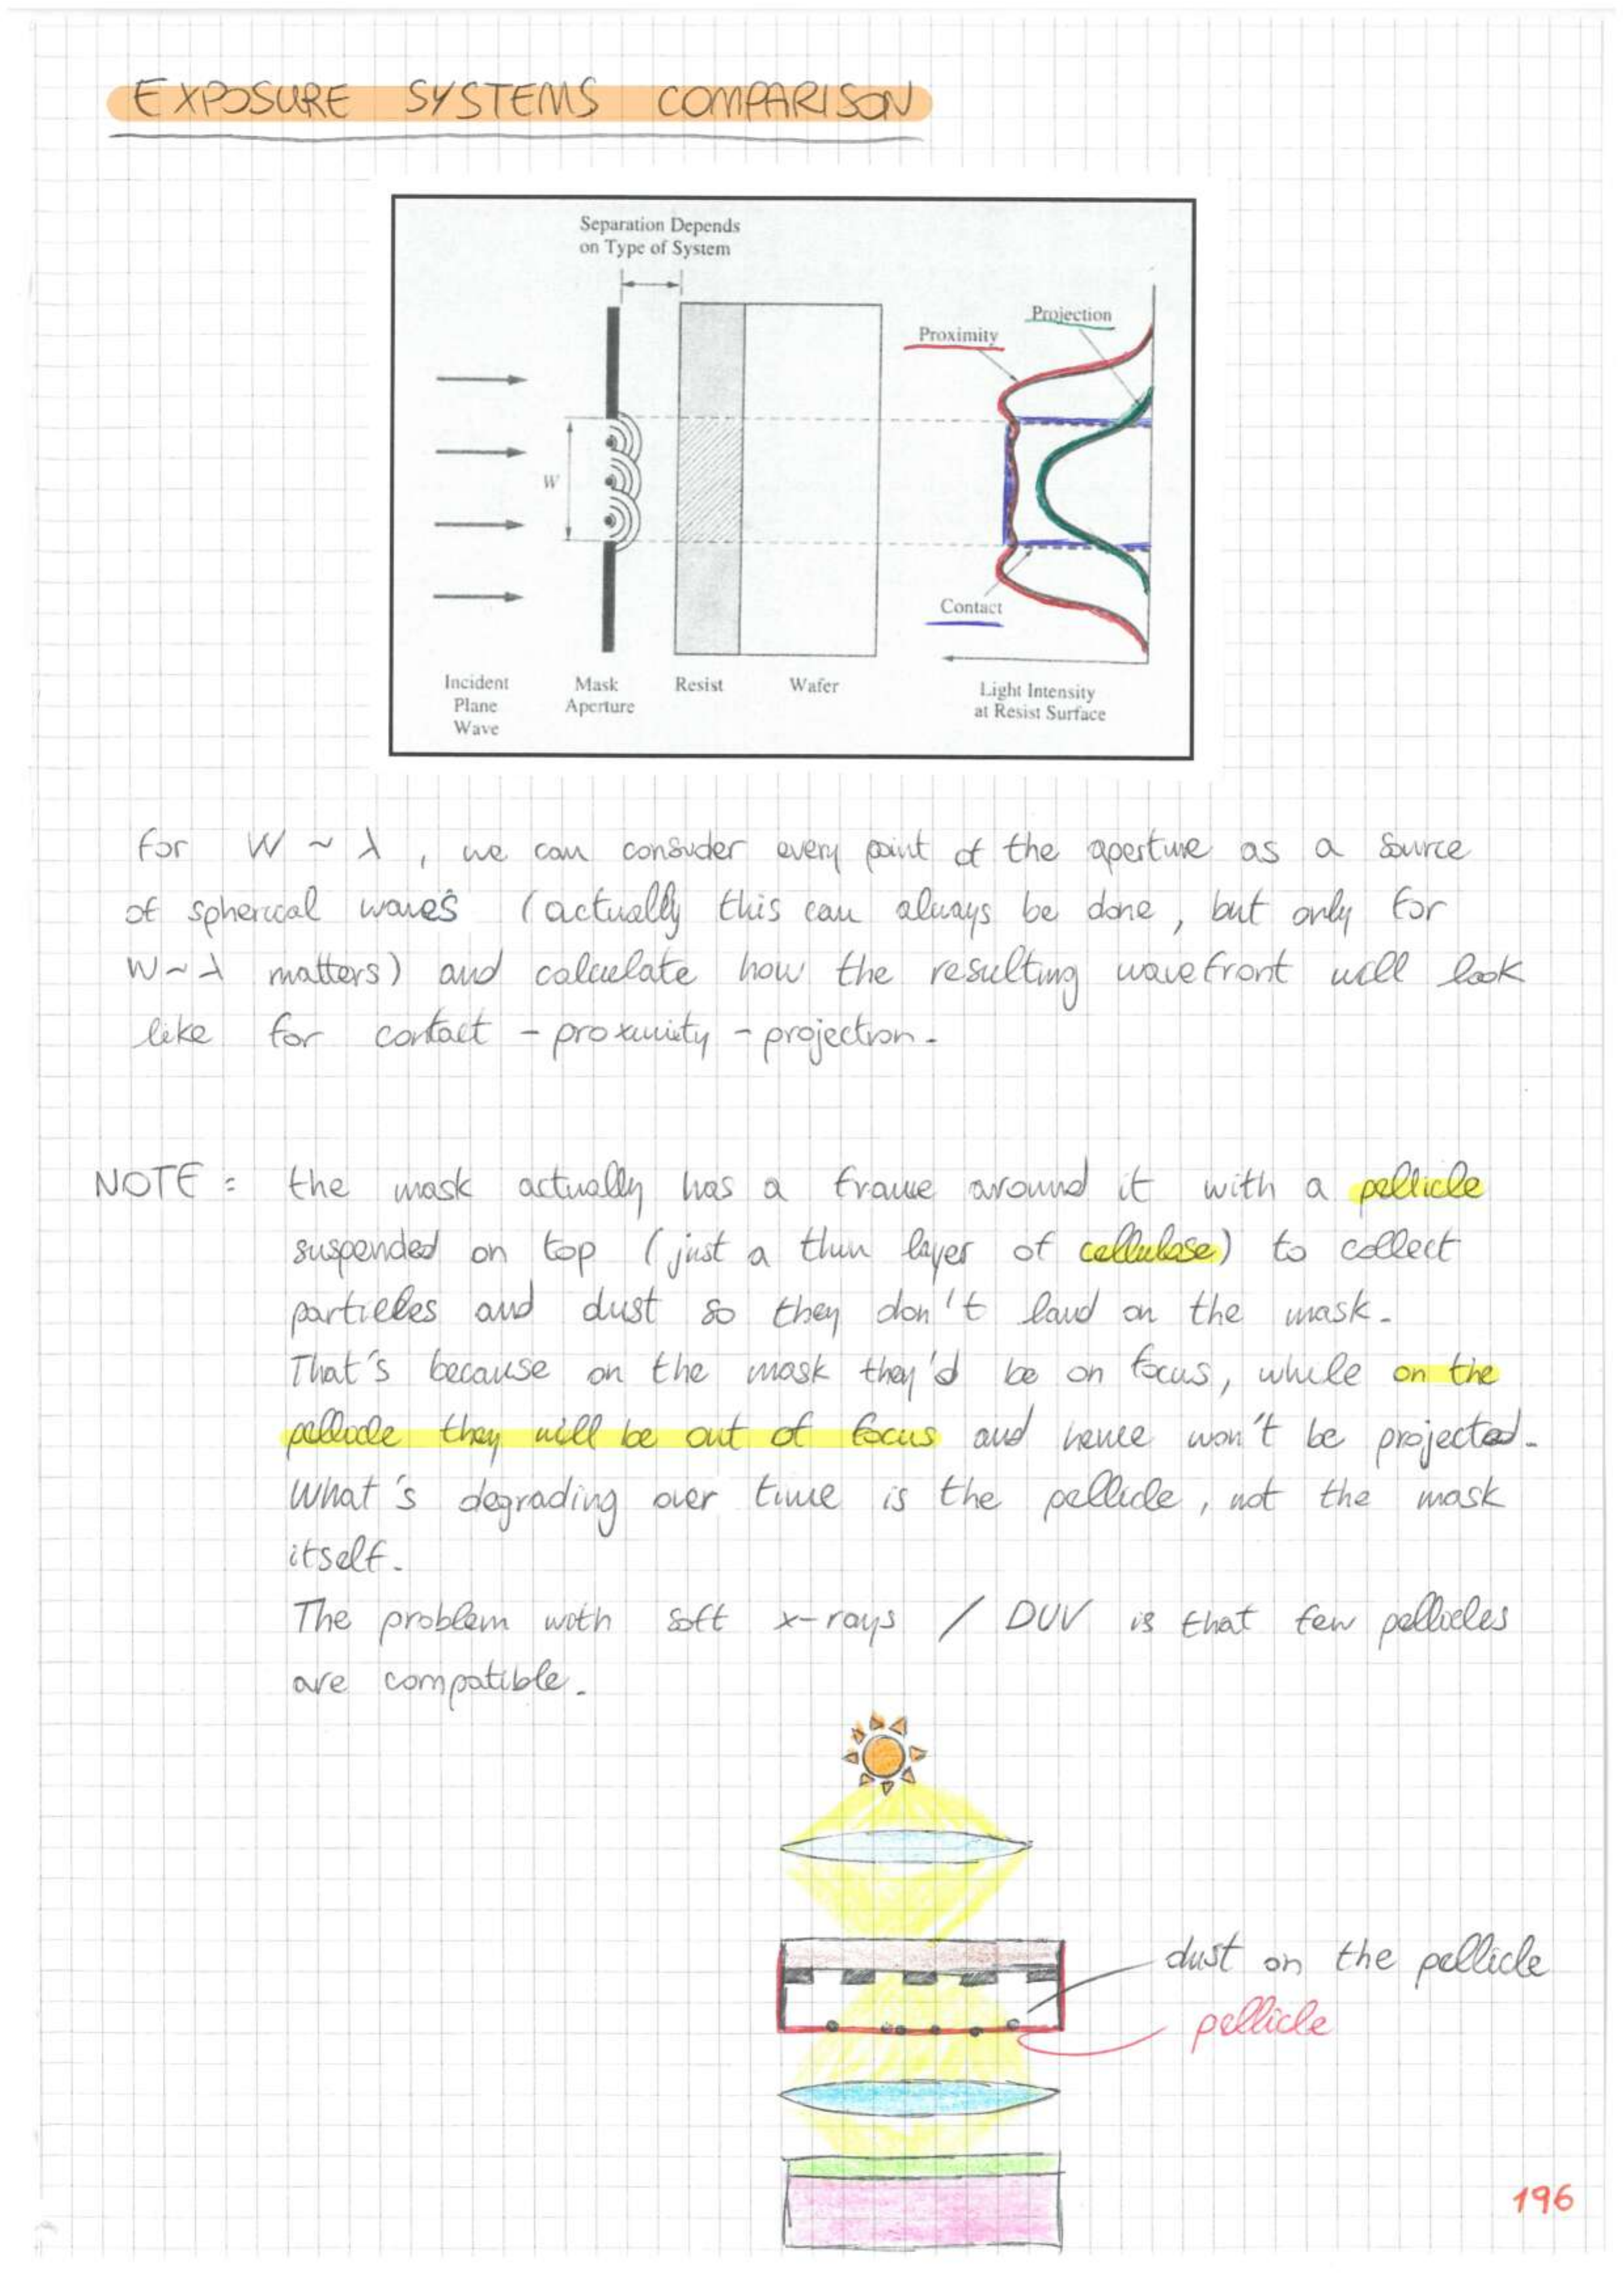 EXPOSURE SYSTEMS COMPARISON
Separation Depends
on Type of System
Projection
Proximity
W
Contact
Incident
Plane
Wave
Mask
Aperture
Resist
Wafer
Light Intensity
at Resist Surface
for W ~ λ, we can consider every point of the aperture as a source
of spherical waves (actually this can always be done, but only for
W~λ matters) and calculate how the resulting wavefront will look
like for contact - proximity - projection.
NOTE: the mask actually has a frame around it with a pellicle
suspended on top (just a thin layer of cellulose) to collect
particles and dust so they don't land on the mask.
That's because on the mask they'd be on focus, while on the
pellicle they will be out of focus and hence won't be projected.
What's degrading over time is the pellicle, not the mask
itself.
The problem with soft x-rays / DUV is that few pellicles
are compatible.
dust on the pellicle
pellicle
196